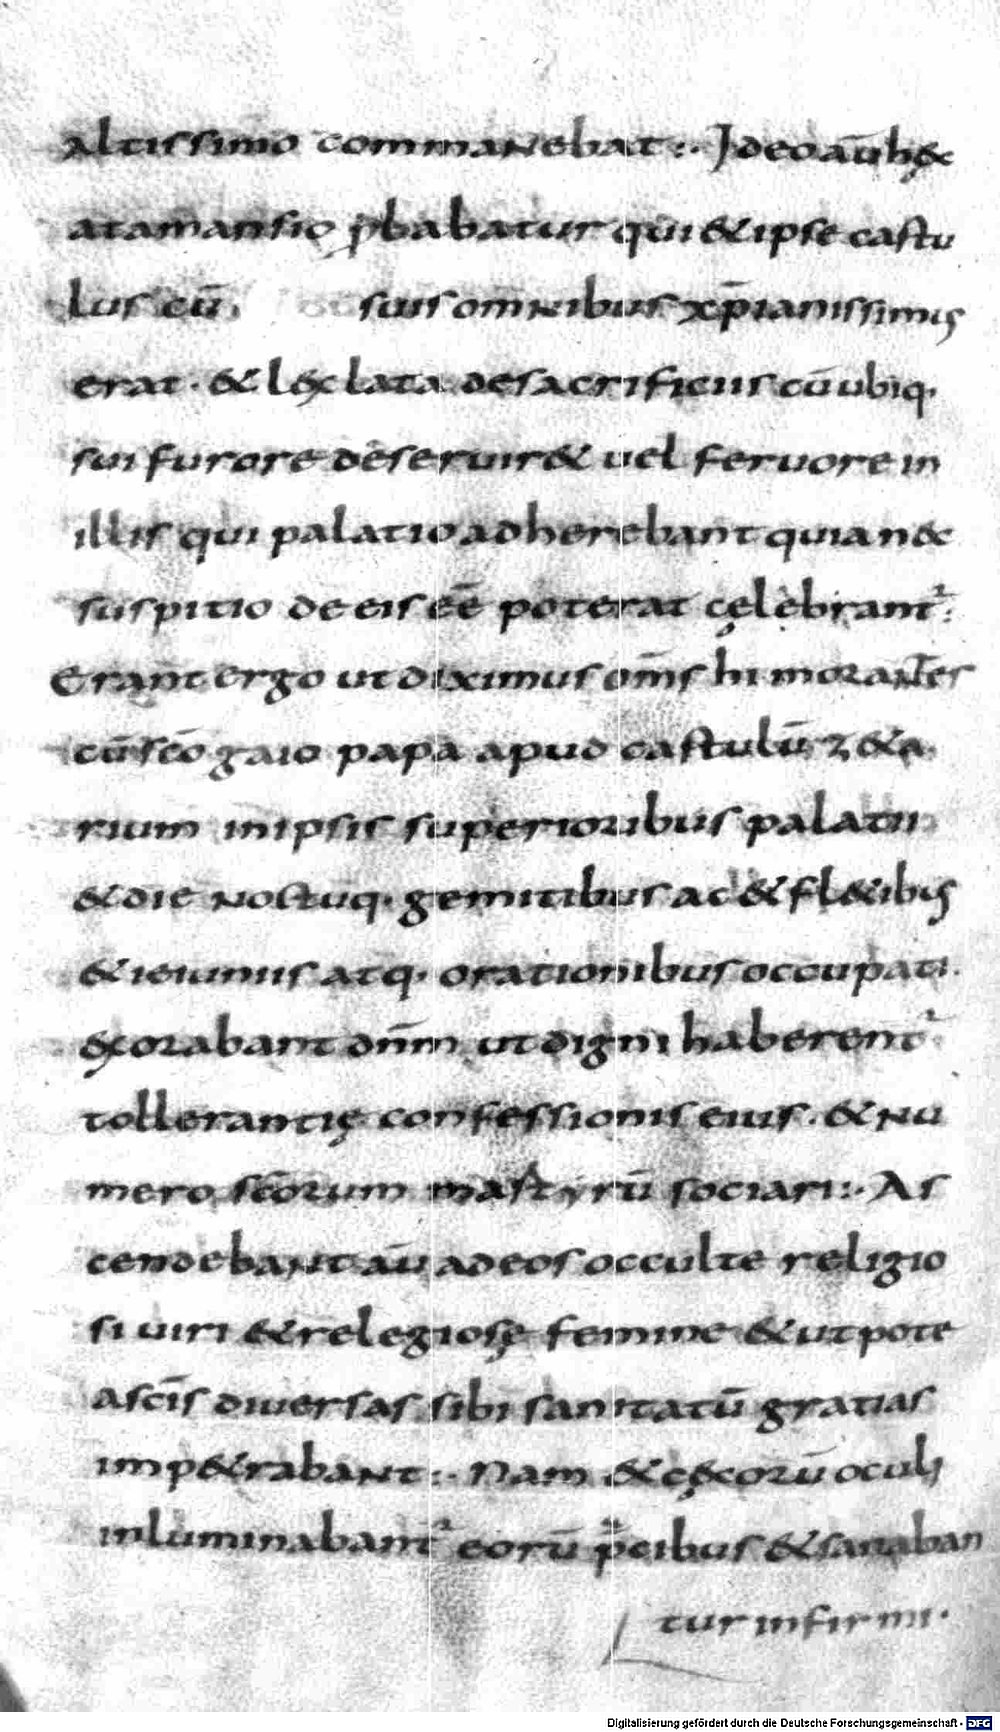 altissimo commanebat:· Ideo aū hęc
ata mansio p̄babatur qui & ipse castu
lus cū suis om̄nibus xp̄ianissimus
erat · & lex lata de sacrificiis cū ubiq·
sui furore deseruir& uel feruore in
illis qui palatio adherebant quia nec
suspitio de eis eē poterat cęlebrant᷑:
Erant ergo ut diximus om̄s hi morantes
cū sc̄o gaio papa apud castulū z&a
rium in ipsis superioribus palatii
& die noctuq· gemitibus ac & fl&ibus
& ieiuniis atq· orationibus occupati.
exorabant dn̄m ut digni haberent᷑·
tollerantię confessionis eius · & nu
mero sc̄orum mastyrū sociari:· As
cendebant aū ad eos occulte religio
si uiri & relegiosę femine & utpote
a sc̄is diuersas sibi sanitatū gratias
imp&rabant:· Nam & cęcorū oculi
inluminabant᷑ eorū p̄cibus & sanaban
tur infirmi·
Digitalisierung gefördert durch die Deutsche Forschungsgemeinschaft - DFG